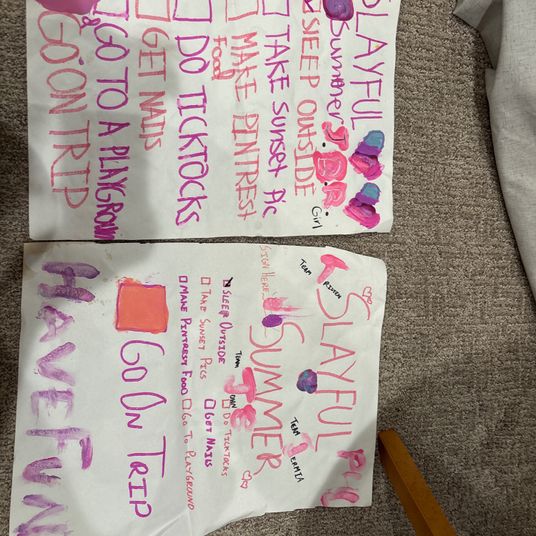 SLAYFUL
Summer
SLEEP OUTSIDE
TAKE SUNSET PIC
MAKE PINTREST
Food
DO TICKTOCKS
GET NAILS
GO TO A PLAYGROUN
GO ON TRIP
Girl
SLAYFUL
SUMMER
TEAM
TEAM
TEAM
SIGN HERE
SLEEP OUTSIDE
TAKE SUNSET PICS
MAKE PINTREST FOOD
DO TICKTOCKS
GET NAILS
GO TO PLAYGROUND
GO ON TRIP
HAVE FUN